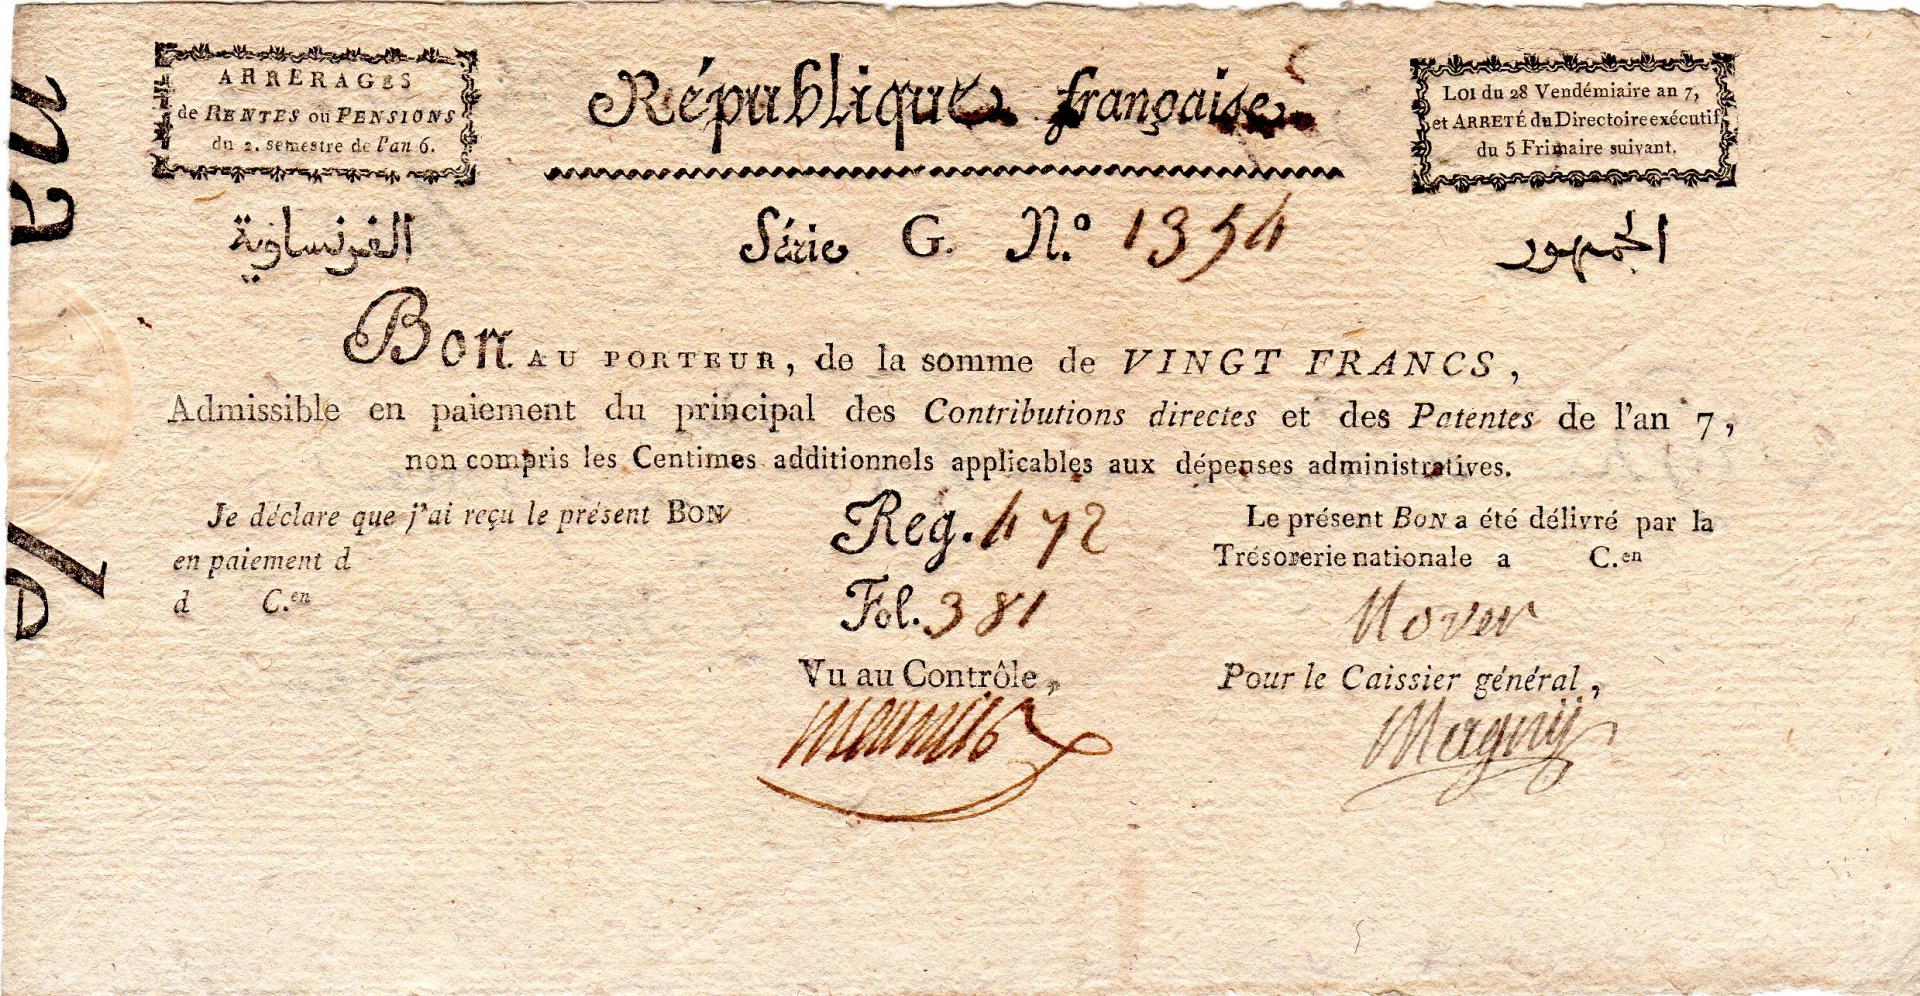 ARRÉRAGES
de RENTES ou PENSIONS
du 2. semestre de l'an 6.
République française.
LOI du 28 Vendémiaire an 7,
et ARRETÉ du Directoire exécutif,
du 5 Frimaire suivant.
الجمهور
Série G. N.º 1354
الفرنساوية
Bon AU PORTEUR, de la somme de VINGT FRANCS,
Admissible en paiement du principal des Contributions directes et des Patentes de l'an 7,
non compris les Centimes additionnels applicables aux dépenses administratives.
Je déclare que j'ai reçu le présent BON
en paiement d
d C.en
Reg. 472
Fol. 381
Vu au Contrôle,
Le présent BON a été délivré par la
Trésorerie nationale a C.en
Pour le Caissier général,
Magnÿ
na
le